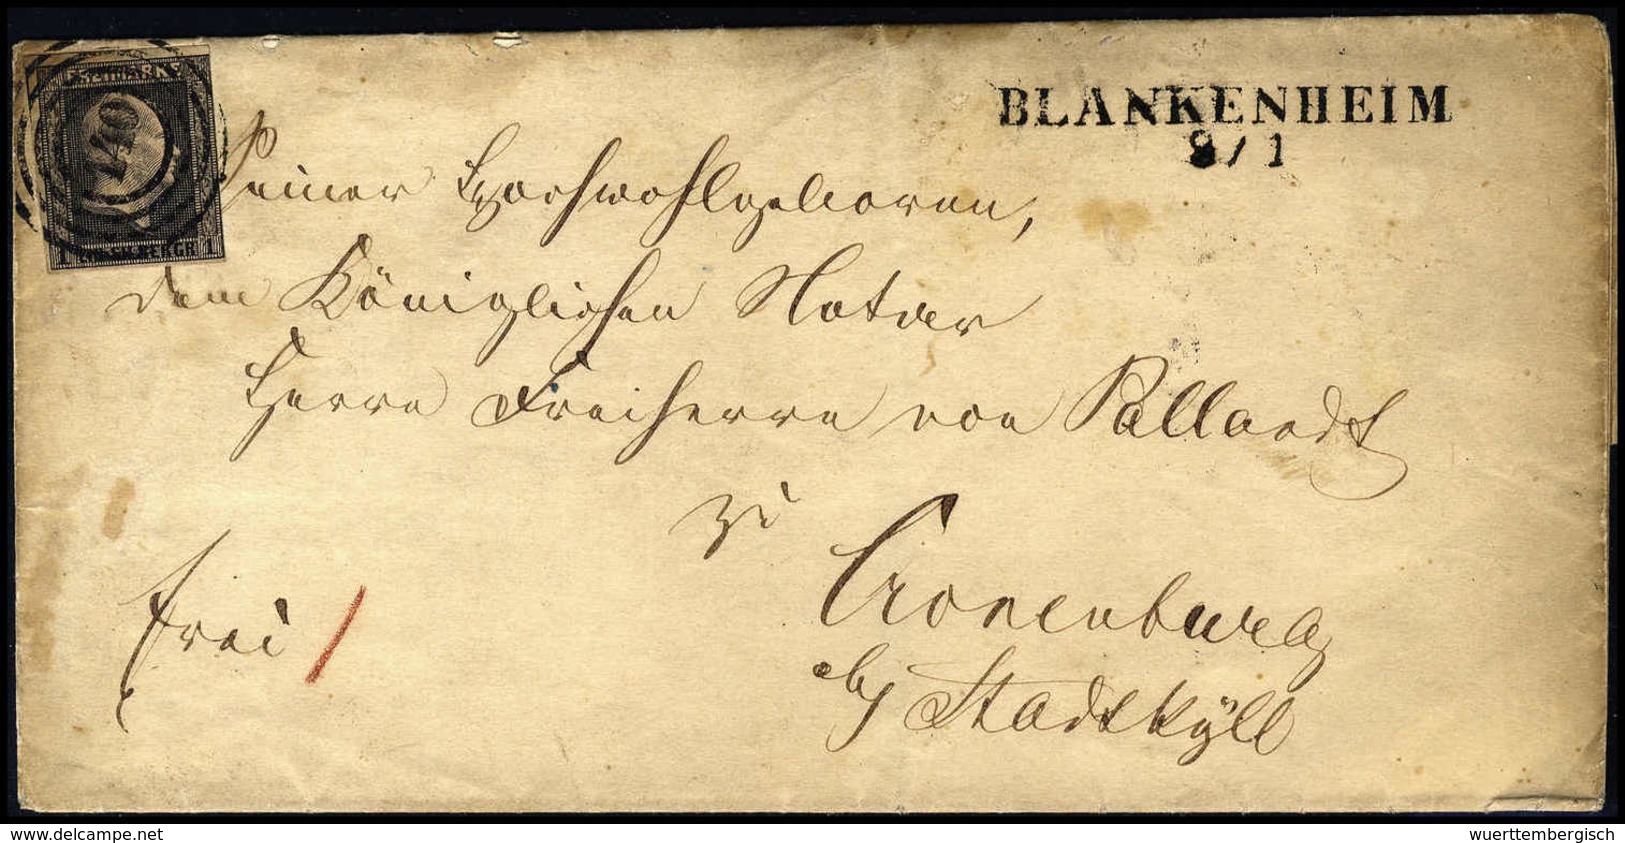 FREIMARKE
140
1 SILBERGR. 1
BLANKENHEIM
8/1
Seiner Hochwohlgeboren,
dem Königlichen Notar
Herrn Freiherrn von Pallandt
zu
Cronenburg
bey Stadtkyll
frei
www.delcampe.net
wuerttembergisch